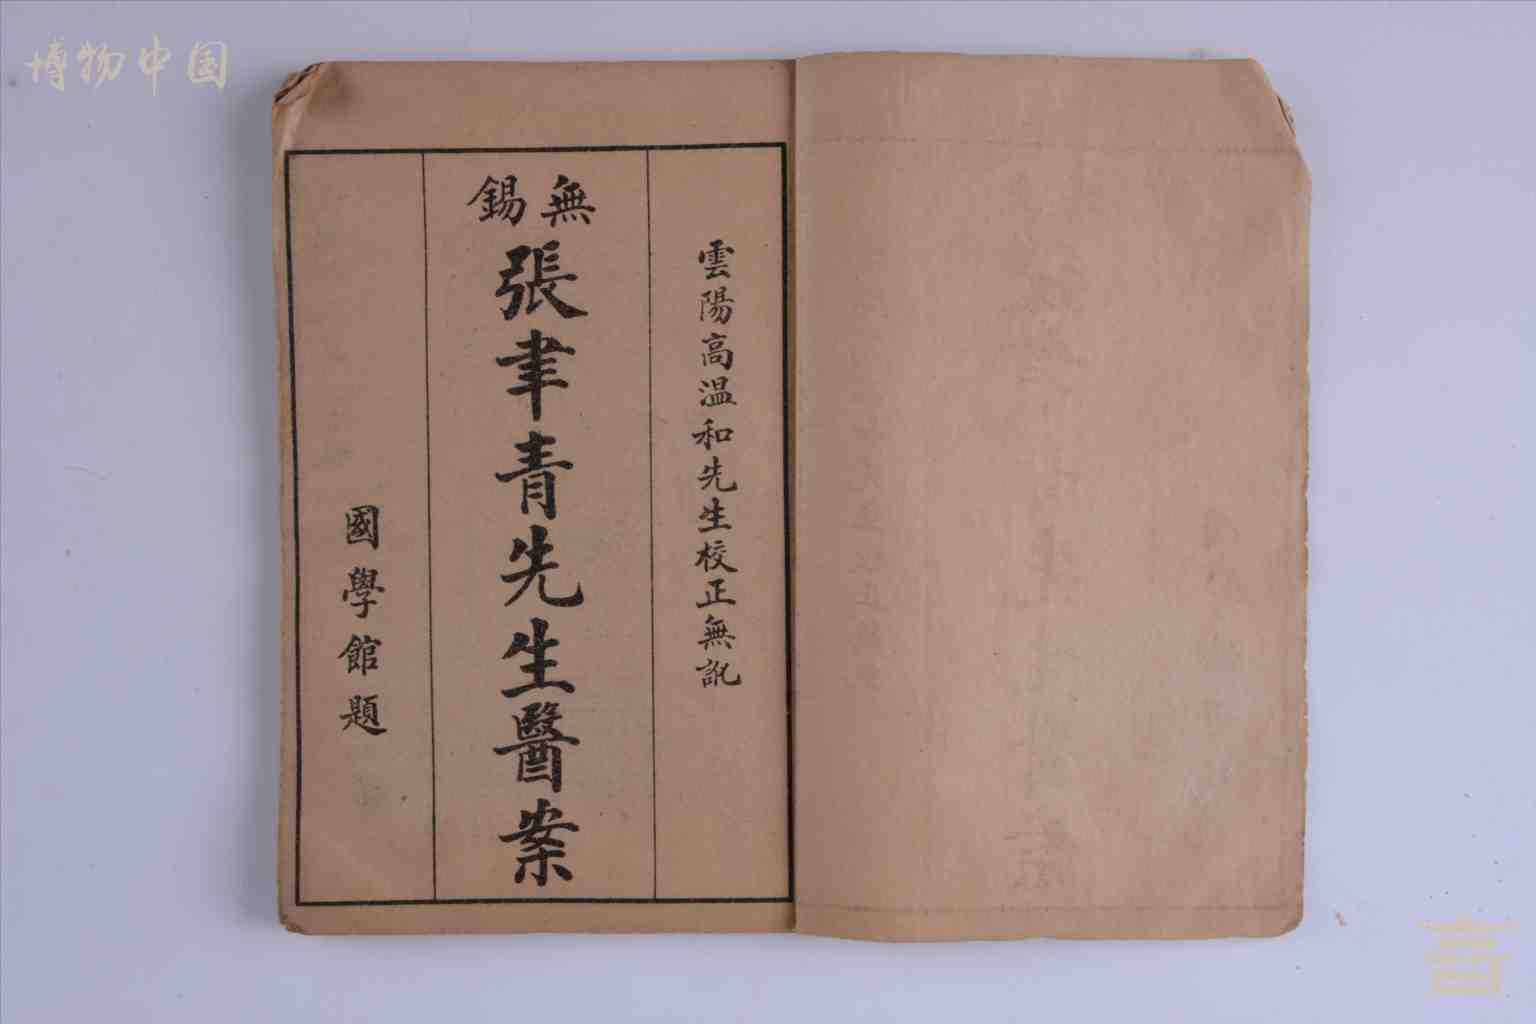 博物中国
雲陽高温和先生校正無訛
無錫
張聿青先生醫案
國學館題